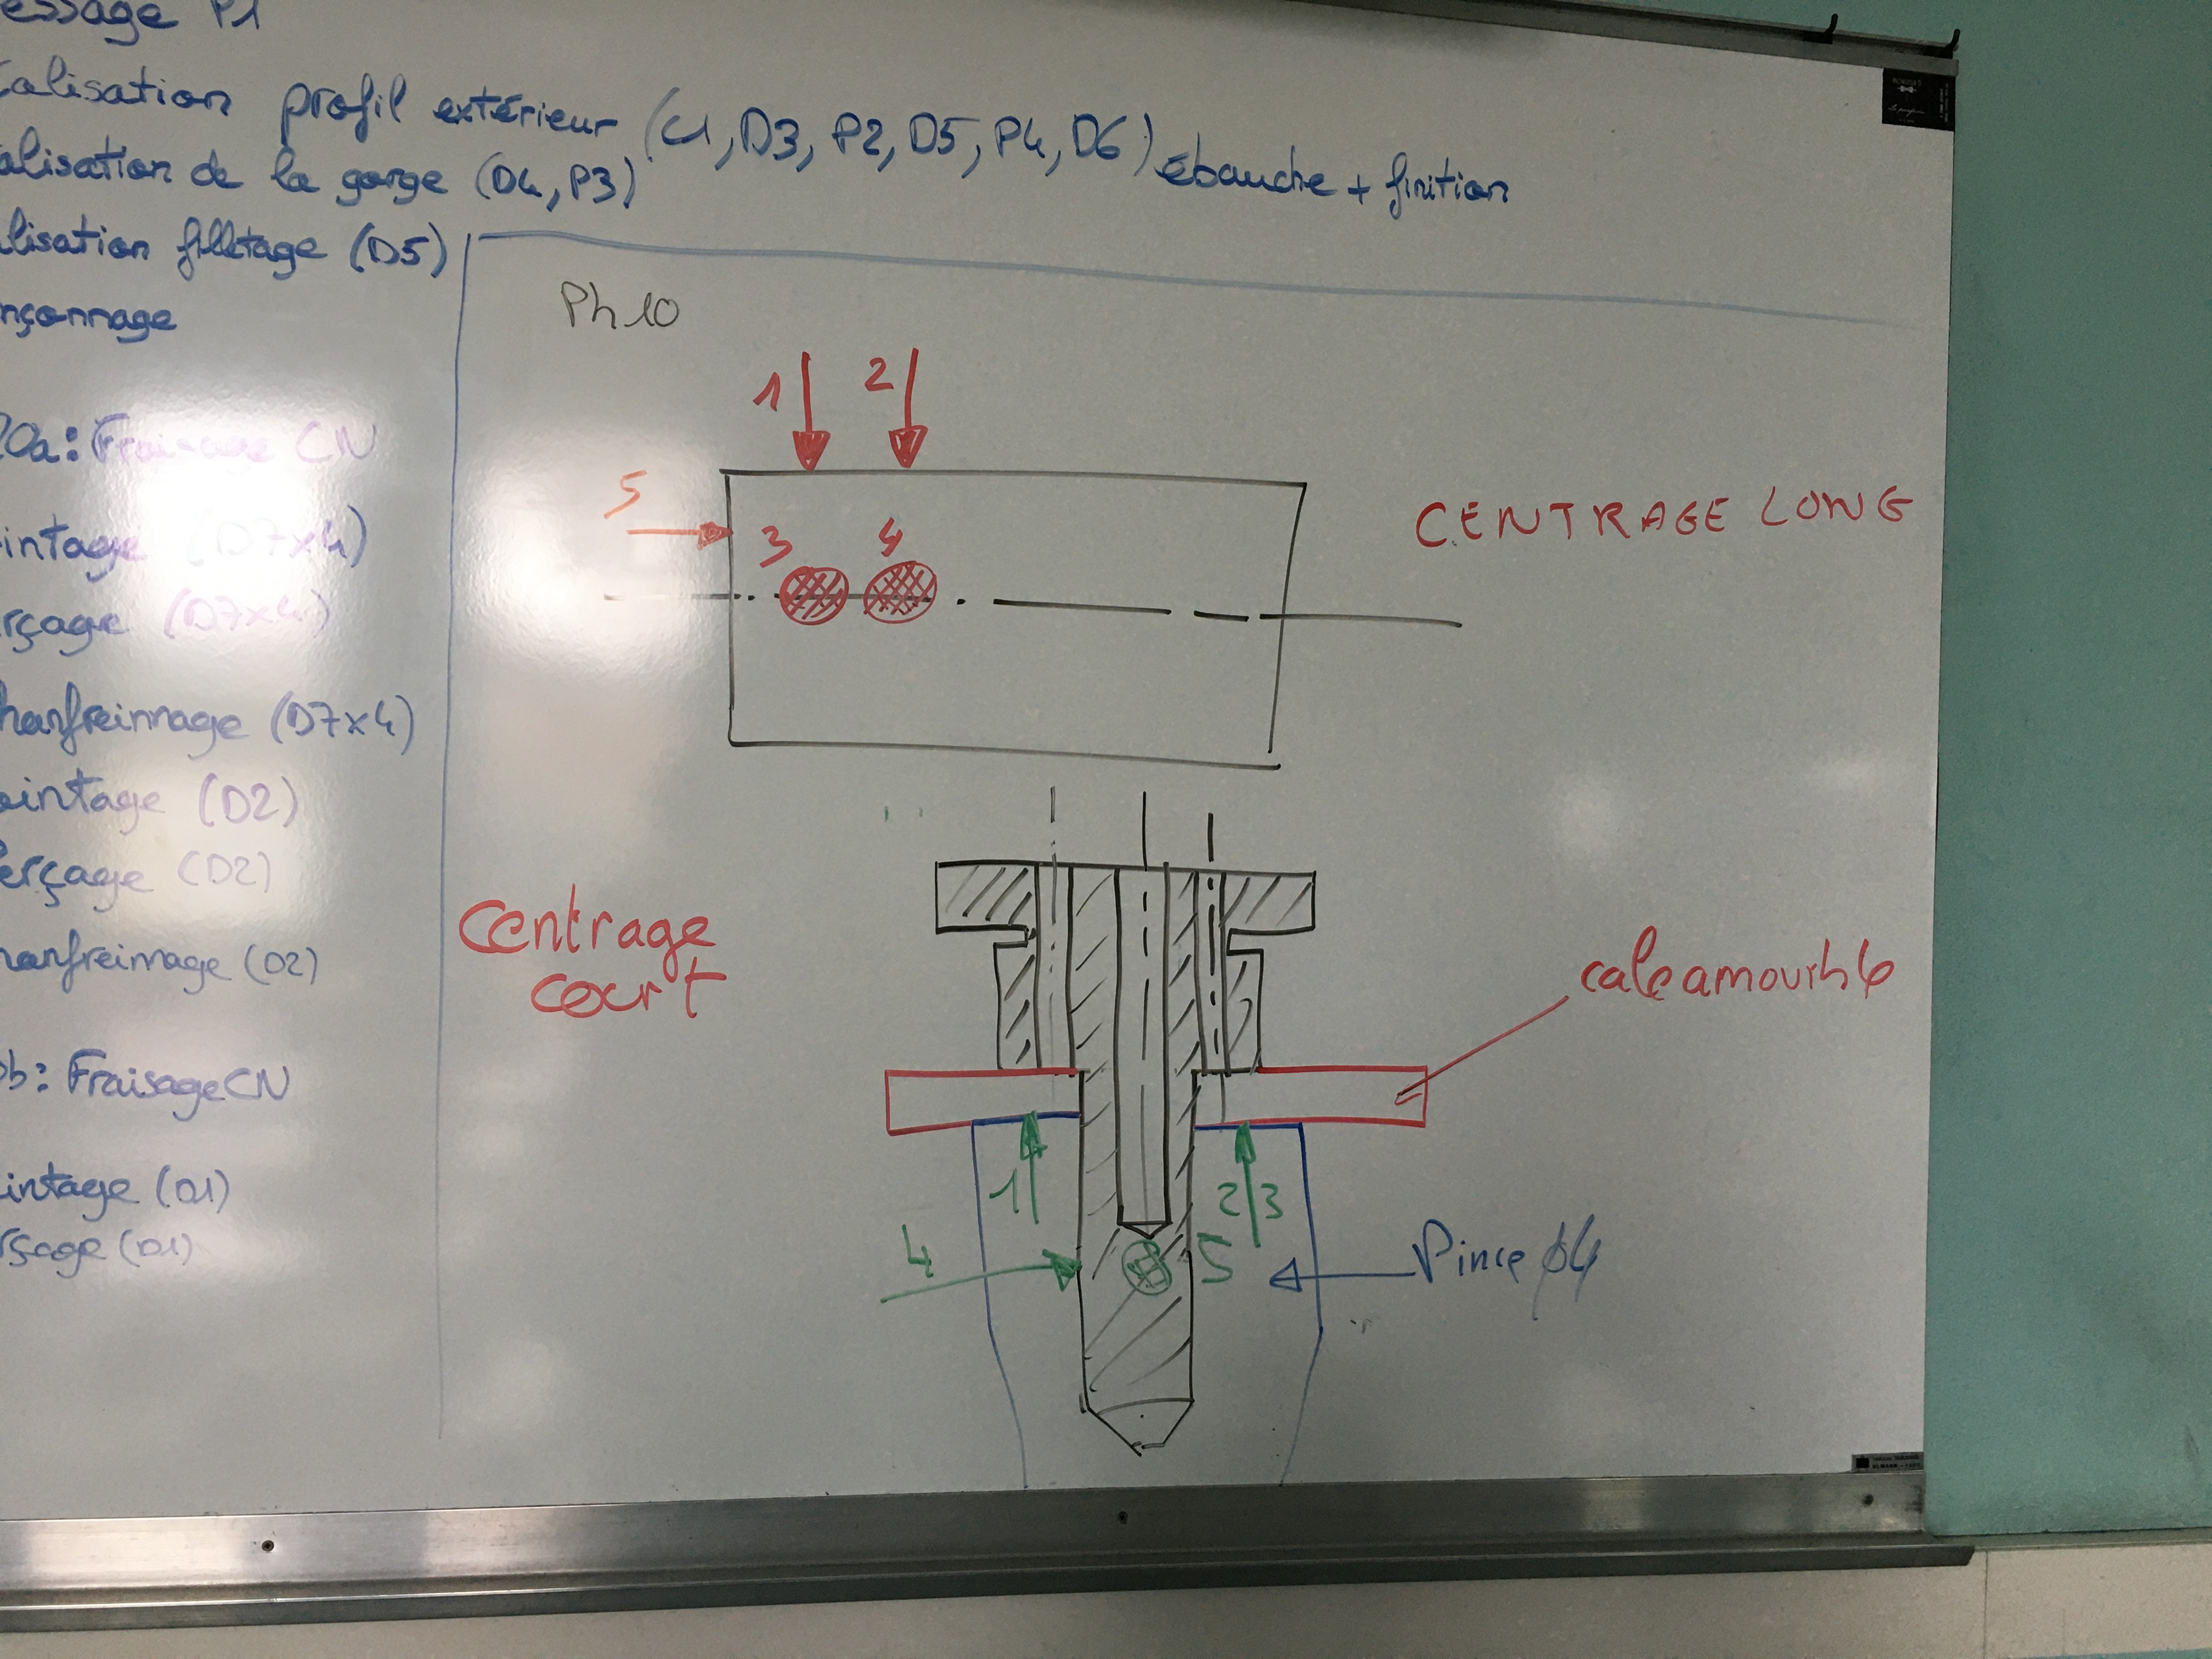 essage P1
éalisation profil extérieur (C1, D3, P2, D5, P4, D6) ébauche + finition
alisation de la gorge (D4, P3)
lisation filletage (D5)
nçonnage
20a: Fraisage CN
intage (D7x4)
rçage (D7x4)
hanfreinnage (D7x4)
ointage (D2)
erçage (D2)
hanfreimage (D2)
0b: Fraisage CN
intage (D1)
rçage (D1)
Ph 10
1 2
5
3 4
CENTRAGE LONG
Centrage
court
1
2 3
4
5
Pince ϕ4